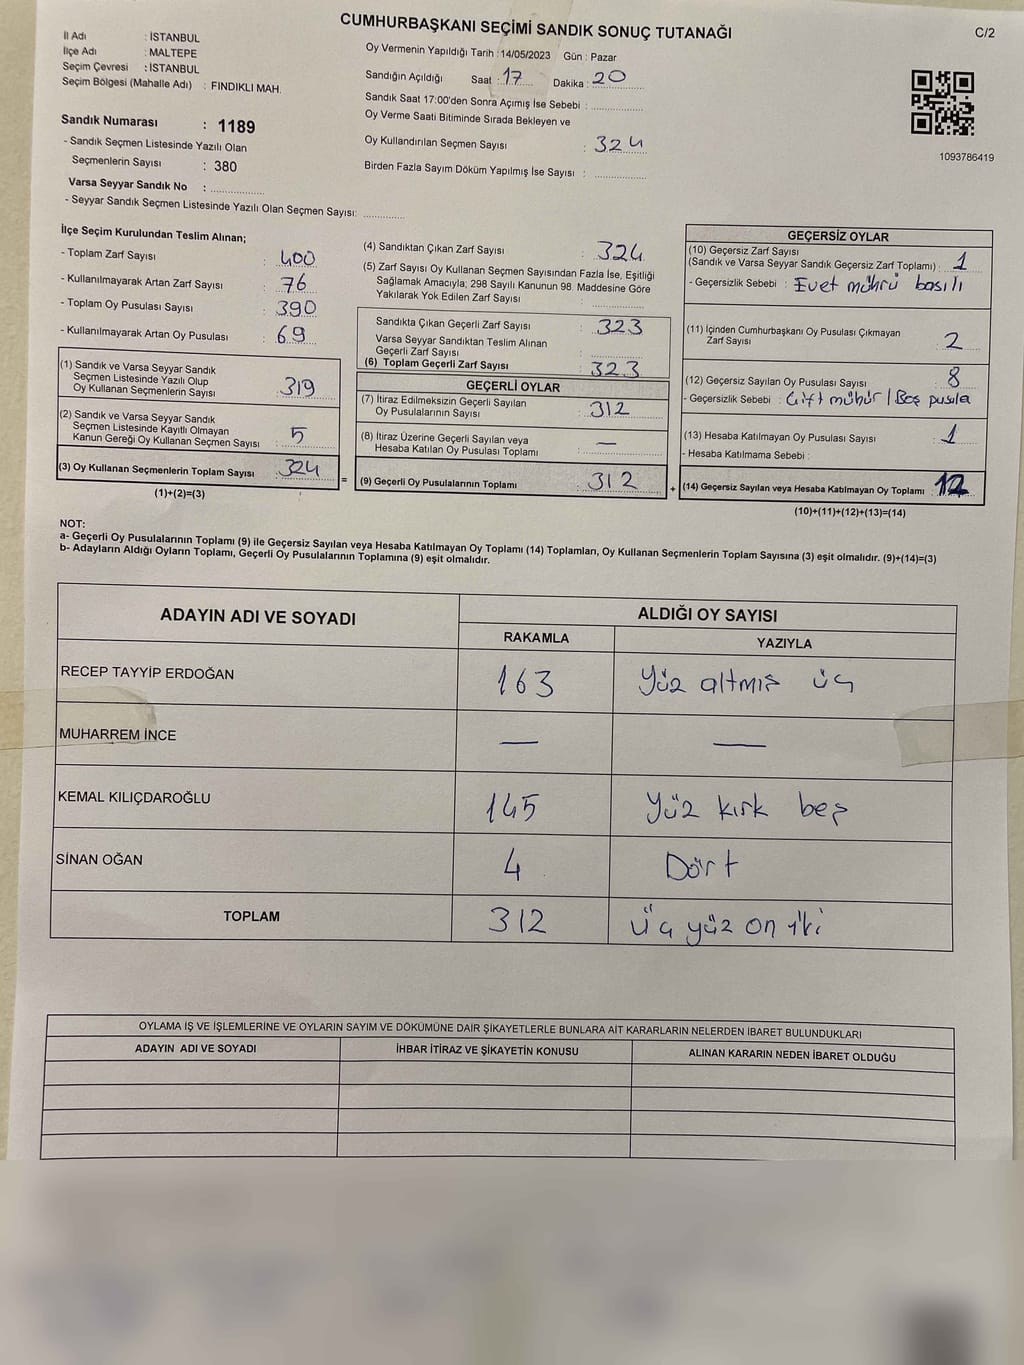 CUMHURBAŞKANI SEÇİMİ SANDIK SONUÇ TUTANAĞI
C/2
İl Adı : İSTANBUL
İlçe Adı : MALTEPE
Seçim Çevresi : İSTANBUL
Seçim Bölgesi (Mahalle Adı) : FINDIKLI MAH.
Sandık Numarası : 1189
- Sandık Seçmen Listesinde Yazılı Olan
Seçmenlerin Sayısı : 380
Varsa Seyyar Sandık No :
- Seyyar Sandık Seçmen Listesinde Yazılı Olan Seçmen Sayısı:
Oy Vermenin Yapıldığı Tarih : 14/05/2023 Gün : Pazar
Sandığın Açıldığı Saat : 17 Dakika : 20
Sandık Saat 17:00'den Sonra Açımış İse Sebebi :
Oy Verme Saati Bitiminde Sırada Bekleyen ve
Oy Kullandırılan Seçmen Sayısı : 324
Birden Fazla Sayım Döküm Yapılmış İse Sayısı :
1093786419
İlçe Seçim Kurulundan Teslim Alınan;
- Toplam Zarf Sayısı : 400
- Kullanılmayarak Artan Zarf Sayısı : 76
- Toplam Oy Pusulası Sayısı : 390
- Kullanılmayarak Artan Oy Pusulası : 69
(1) Sandık ve Varsa Seyyar Sandık
Seçmen Listesinde Yazılı Olup
Oy Kullanan Seçmenlerin Sayısı : 319
(2) Sandık ve Varsa Seyyar Sandık
Seçmen Listesinde Kayıtlı Olmayan
Kanun Gereği Oy Kullanan Seçmen Sayısı : 5
(3) Oy Kullanan Seçmenlerin Toplam Sayısı : 324
(1)+(2)=(3)
=
(4) Sandıktan Çıkan Zarf Sayısı : 324
(5) Zarf Sayısı Oy Kullanan Seçmen Sayısından Fazla İse, Eşitliği
Sağlamak Amacıyla; 298 Sayılı Kanunun 98. Maddesine Göre
Yakılarak Yok Edilen Zarf Sayısı :
Sandıkta Çıkan Geçerli Zarf Sayısı : 323
Varsa Seyyar Sandıktan Teslim Alınan
Geçerli Zarf Sayısı :
(6) Toplam Geçerli Zarf Sayısı : 323
GEÇERLİ OYLAR
(7) İtiraz Edilmeksizin Geçerli Sayılan
Oy Pusulalarının Sayısı : 312
(8) İtiraz Üzerine Geçerli Sayılan veya
Hesaba Katılan Oy Pusulası Toplamı : —
(9) Geçerli Oy Pusulalarının Toplamı : 312
+
GEÇERSİZ OYLAR
(10) Geçersiz Zarf Sayısı
(Sandık ve Varsa Seyyar Sandık Geçersiz Zarf Toplamı) : 1
- Geçersizlik Sebebi : Evet mührü basılı
(11) İçinden Cumhurbaşkanı Oy Pusulası Çıkmayan
Zarf Sayısı : 2
(12) Geçersiz Sayılan Oy Pusulası Sayısı : 8
- Geçersizlik Sebebi : Çift mühür / Boş pusula
(13) Hesaba Katılmayan Oy Pusulası Sayısı : 1
- Hesaba Katılmama Sebebi :
(14) Geçersiz Sayılan veya Hesaba Katılmayan Oy Toplamı : 12
(10)+(11)+(12)+(13)=(14)
NOT:
a- Geçerli Oy Pusulalarının Toplamı (9) ile Geçersiz Sayılan veya Hesaba Katılmayan Oy Toplamı (14) Toplamları, Oy Kullanan Seçmenlerin Toplam Sayısına (3) eşit olmalıdır. (9)+(14)=(3)
b- Adayların Aldığı Oyların Toplamı, Geçerli Oy Pusulalarının Toplamına (9) eşit olmalıdır.
ADAYIN ADI VE SOYADI
ALDIĞI OY SAYISI
RAKAMLA YAZIYLA
RECEP TAYYİP ERDOĞAN 163 Yüz altmış üç
MUHARREM İNCE — —
KEMAL KILIÇDAROĞLU 145 Yüz kırk beş
SİNAN OĞAN 4 Dört
TOPLAM 312 Üç yüz on iki
OYLAMA İŞ VE İŞLEMLERİNE VE OYLARIN SAYIM VE DÖKÜMÜNE DAİR ŞİKAYETLERLE BUNLARA AİT KARARLARIN NELERDEN İBARET BULUNDUKLARI
ADAYIN ADI VE SOYADI İHBAR İTİRAZ VE ŞİKAYETİN KONUSU ALINAN KARARIN NEDEN İBARET OLDUĞU